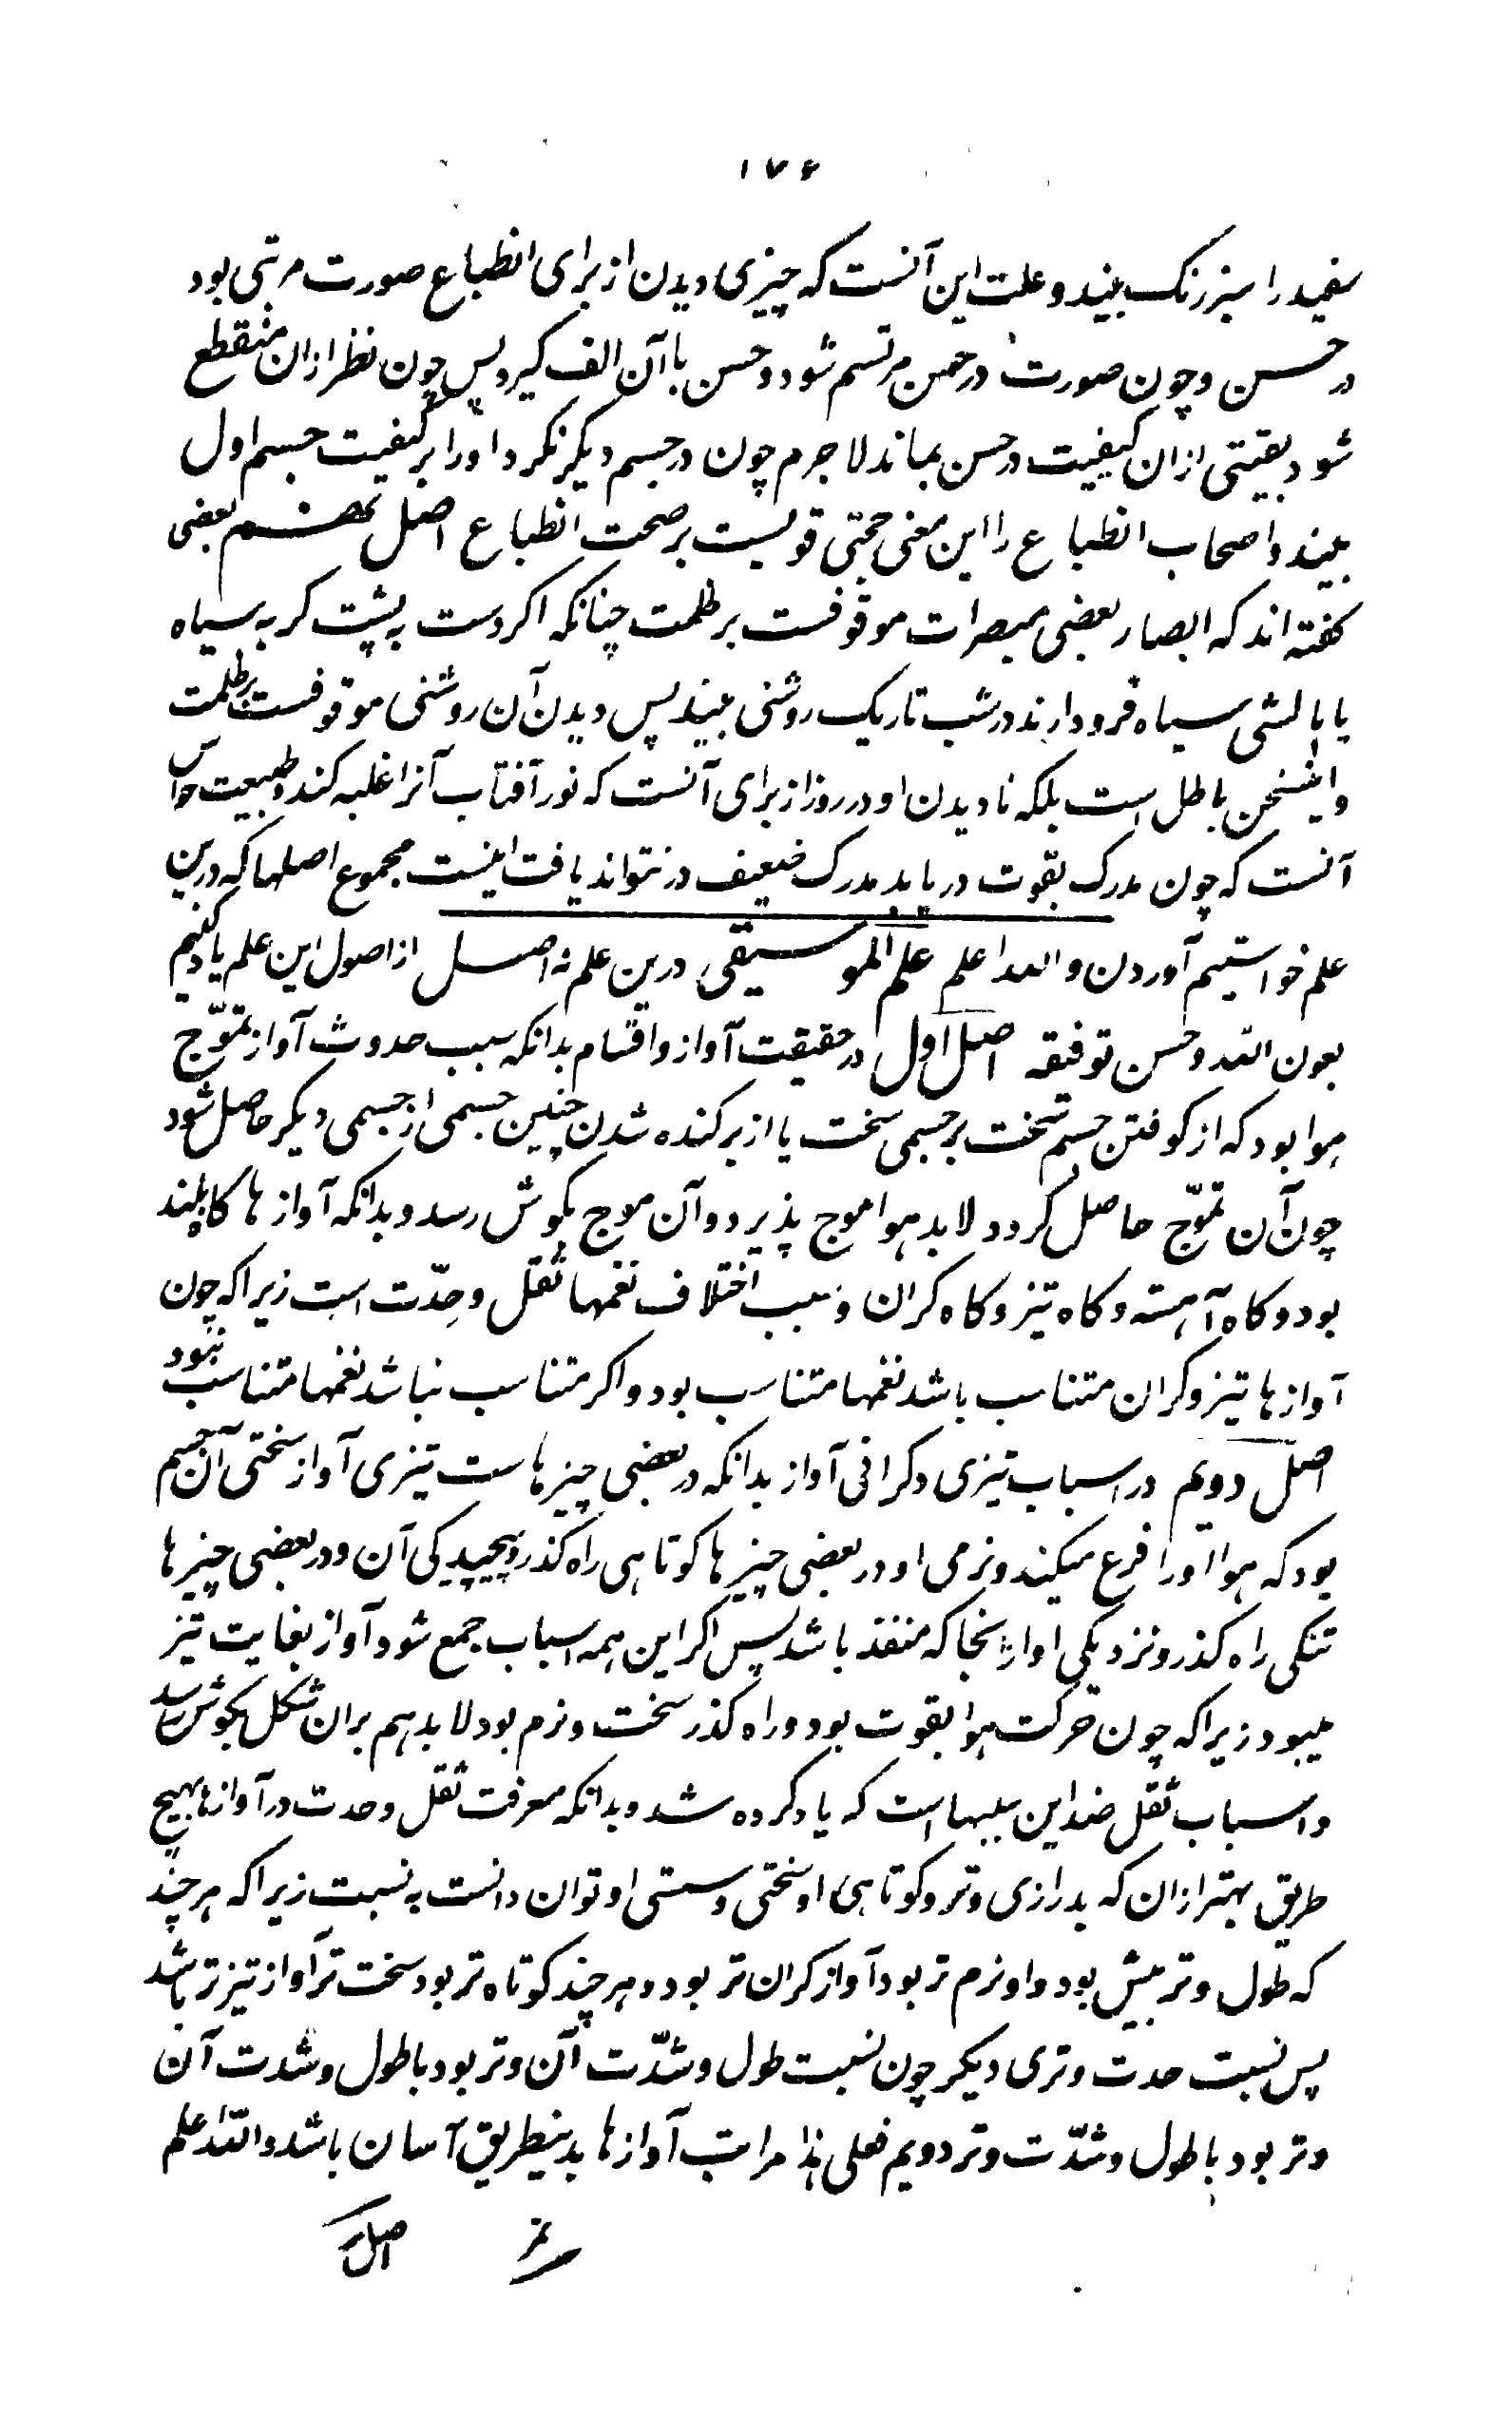 ۱۷۶
سفید را سبز رنک بیند و علت این آنست که چیزی دیدن از برای انطباع صورت مرئی بود
در حس و چون صورت در حس مرتسم شود و حس با آن الف کیرد پس چون نظر ازان منقطع
شود بقیتی ازان کیفیت در حس بماند لاجرم چون در جسم دیکر نکرد او را بر کیفیت جسم اول
بیند و اصحاب انطباع را این معنی حجتی قویست بر صحت انطباع اصل نهم بعضی
کفته اند که ابصار بعضی مبصرات موقوفست بر ظلمت چنانکه اکر دست به پشت کربه سیاه
یا بالشی سیاه فرود ارند در شب تاریک روشنی بیند پس دیدن آن روشنی موقوفست بر ظلمت
و اینسخن باطل است بلکه نادیدن او در روز از برای آنست که نور آفتاب آنرا غلبه کند و طبیعت حواس
آنست که چون مدرک بقوت دریابد مدرک ضعیف در نتواند یافت اینست مجموع اصلها که درین
علم خواستیم آوردن و الله اعلم علم الموسیقی درین علم نه اصل از اصول این علم یاد کنیم
بعون الله و حسن توفیقه اصل اول در حقیقت آواز و اقسام بدانکه سبب حدوث آواز تموّج
هوا بود که از کوفتن جسم سخت بر جسمی سخت یا از بر کنده شدن چنین جسمی از جسمی دیکر حاصل شود
چون آن تموّج حاصل کردد لابد هوا موج پذیرد و آن موج بکوش رسد و بدانکه آواز ها کاه بلند
بود و کاه آهسته و کاه تیز و کاه کران و سبب اختلاف نغمها ثقل و حِدّت است زیرا که چون
آواز ها تیز و کران متناسب باشد نغمها متناسب بود و اکر متناسب نباشد نغمها متناسب نبود
اصل دویم در اسباب تیزی و کرانی آواز بدانکه در بعضی چیزهاست تیزی آواز سختی آن جسم
بود که هوا او را قرع میکند و نرمی او در بعضی چیز ها کوتاهی راه کذر و پیچیدکی آن و در بعضی چیز ها
تنکی راه کذر و نزدیکی او از انجا که منفذ باشد پس اکر این همه اسباب جمع شود آواز بغایت تیز
میبود زیرا که چون حرکت هوا بقوت بود و راه کذر سخت و نرم بود لابد هم بران شکل بکوش رسد
و اسباب ثقل ضد این سببها است که یاد کرده شد و بدانکه معرفت ثقل و حدت در آوازها بهیچ
طریق بهتر ازان که بدرازی وتر و کوتاهی او سختی و سستی او توان دانست به نسبت زیرا که هر چند
که طول وتر بیش بود و او نرم تر بود آواز کران تر بود و هر چند کوتاه تر بود سخت تر آواز تیز تر باشد
پس نسبت حدت وتری دیکر چون نسبت طول و شدّت آن وتر بود با طول و شدت آن
وتر بود با طول و شدّت وتر دویم فعلی هذا مراتب آواز ها بدینطریق آسان باشد و الله اعلم
اصل